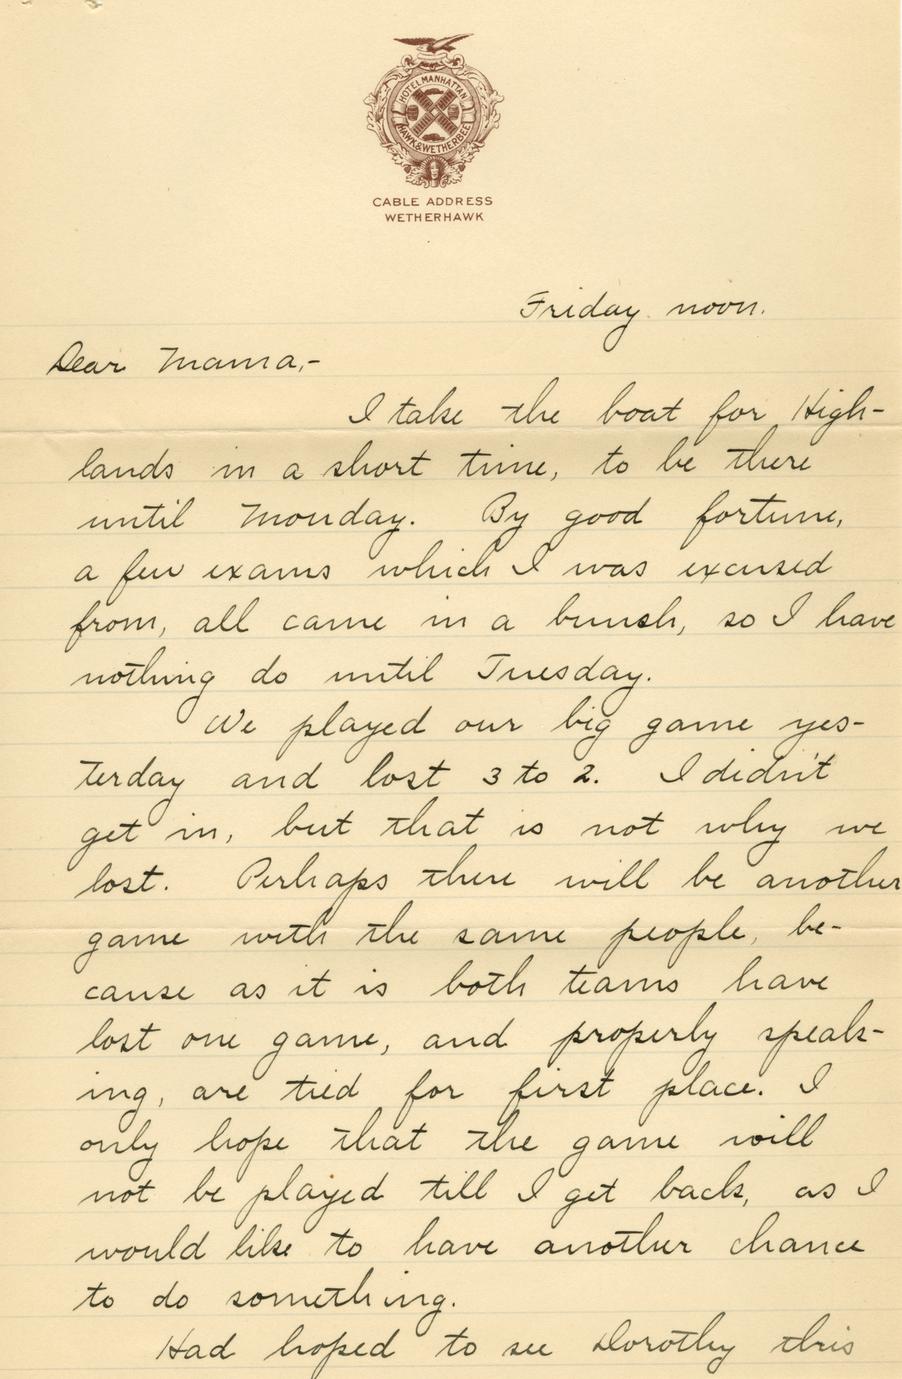 HOTEL MANHATTAN
HAWK & WETHERBEE
CABLE ADDRESS
WETHERHAWK
Friday noon.
Dear Mama,-
I take the boat for High-
lands in a short time, to be there
until Monday. By good fortune,
a few exams which I was excused
from, all came in a bunch, so I have
nothing do until Tuesday.
We played our big game yes-
terday and lost 3 to 2. I didn't
get in, but that is not why we
lost. Perhaps there will be another
game with the same people, be-
cause as it is both teams have
lost one game, and properly speak-
ing, are tied for first place. I
only hope that the game will
not be played till I get back, as I
would like to have another chance
to do something.
Had hoped to see Dorothy this